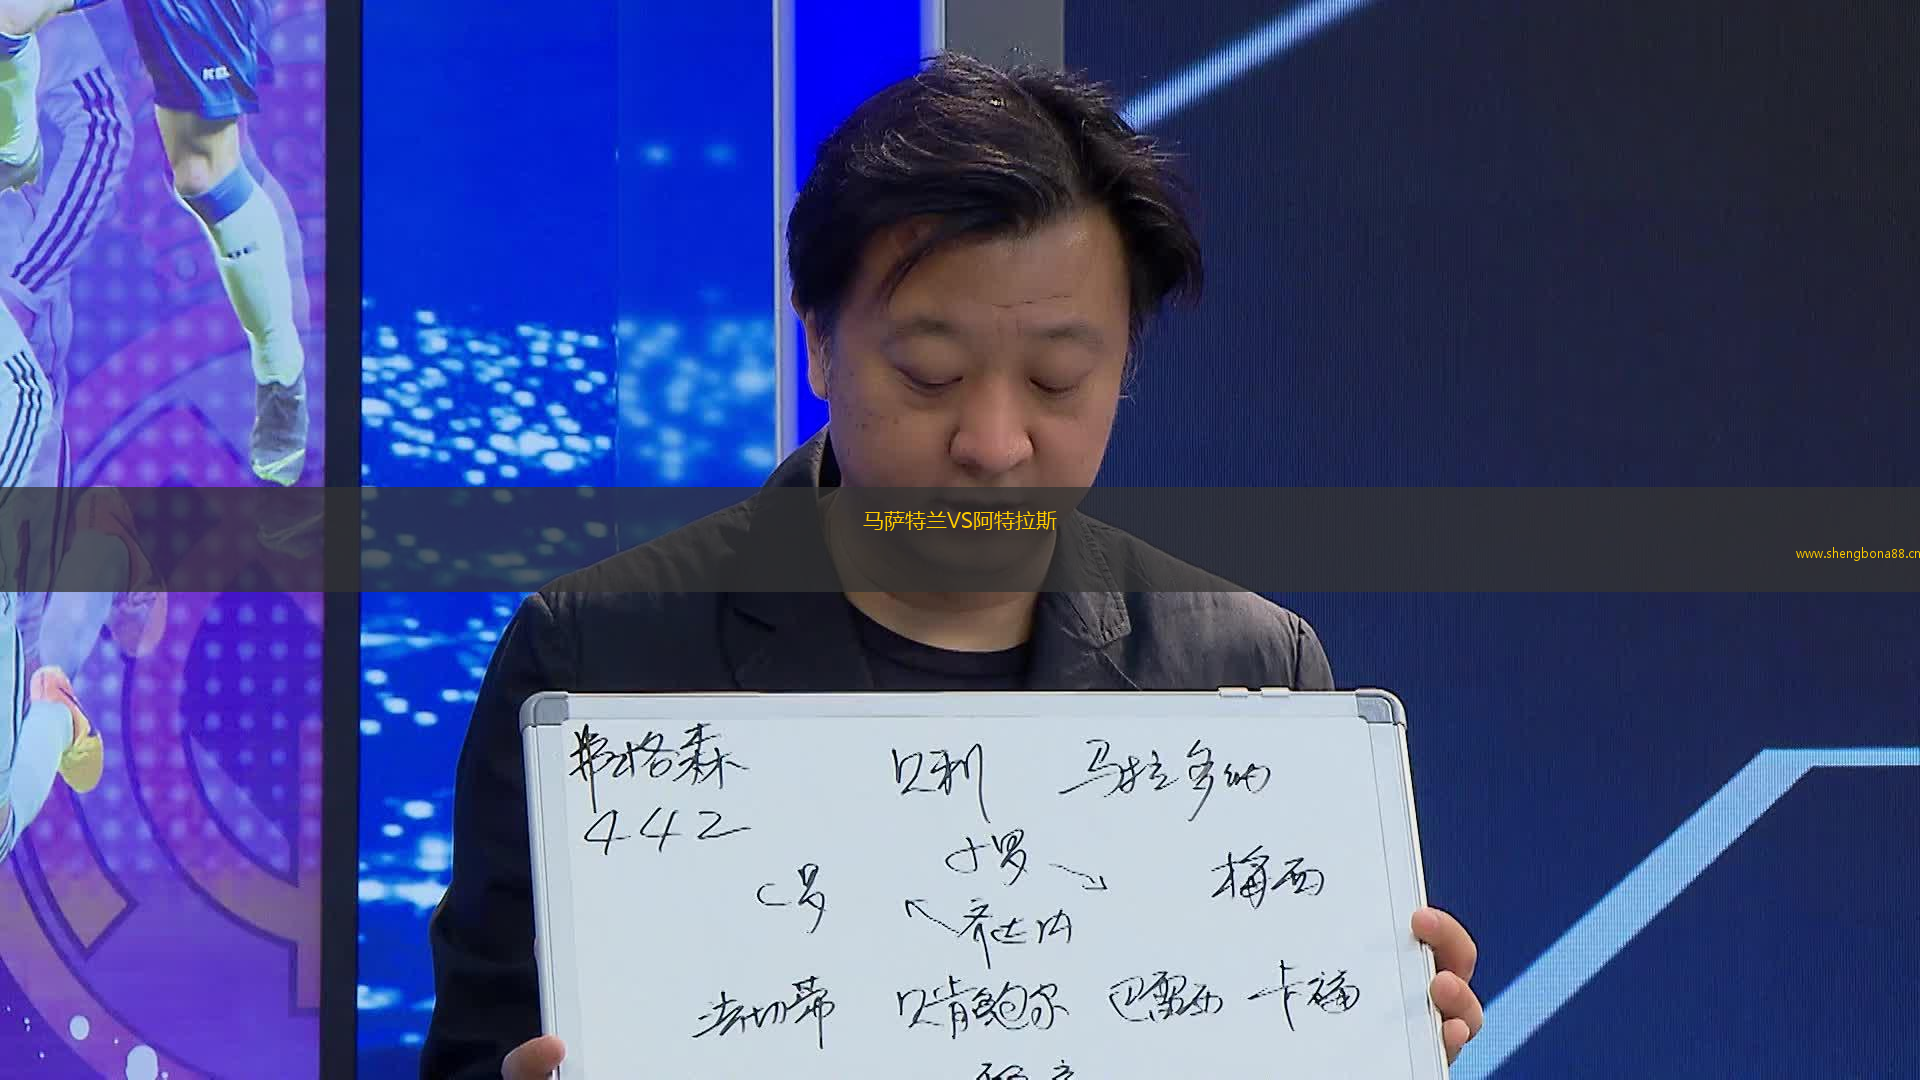 马萨特兰VS阿特拉斯
www.shengbona88.cn
弗格森 贝利 马拉多纳
442
小罗
C罗 梅西
齐达内
法切蒂 贝肯鲍尔 巴雷西 卡福